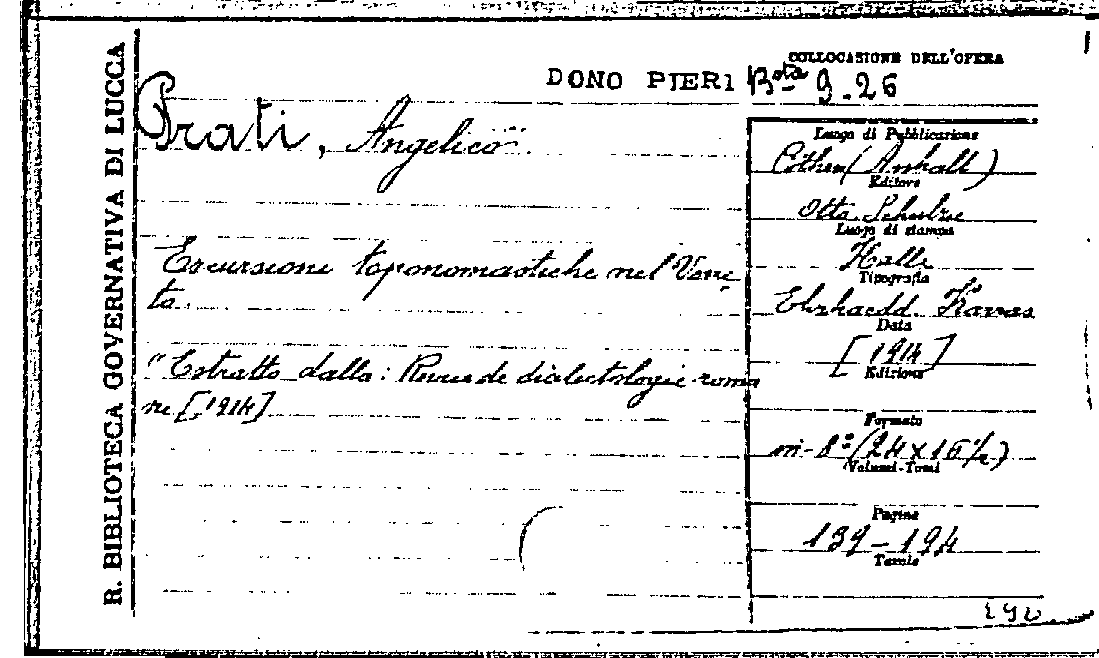 R. BIBLIOTECA GOVERNATIVA DI LUCCA
COLLOCAZIONE DELL'OPERA
DONO PIERI Bta 9.26
Prati, Angelico
Escursione toponomastiche nel Vene-
to.
"Estratto dalla: Revue de dialectologie roma
ne [1914]
Luogo di Pubblicazione
Cöthen (Anhalt)
Editore
Otto Schulze
Luogo di stampa
Halle
Tipografia
Karras
Data
[1914]
Edizione
Formato
in-8° (24 x 16 ½)
Volumi-Tomi
Pagine
139-194
Tavole